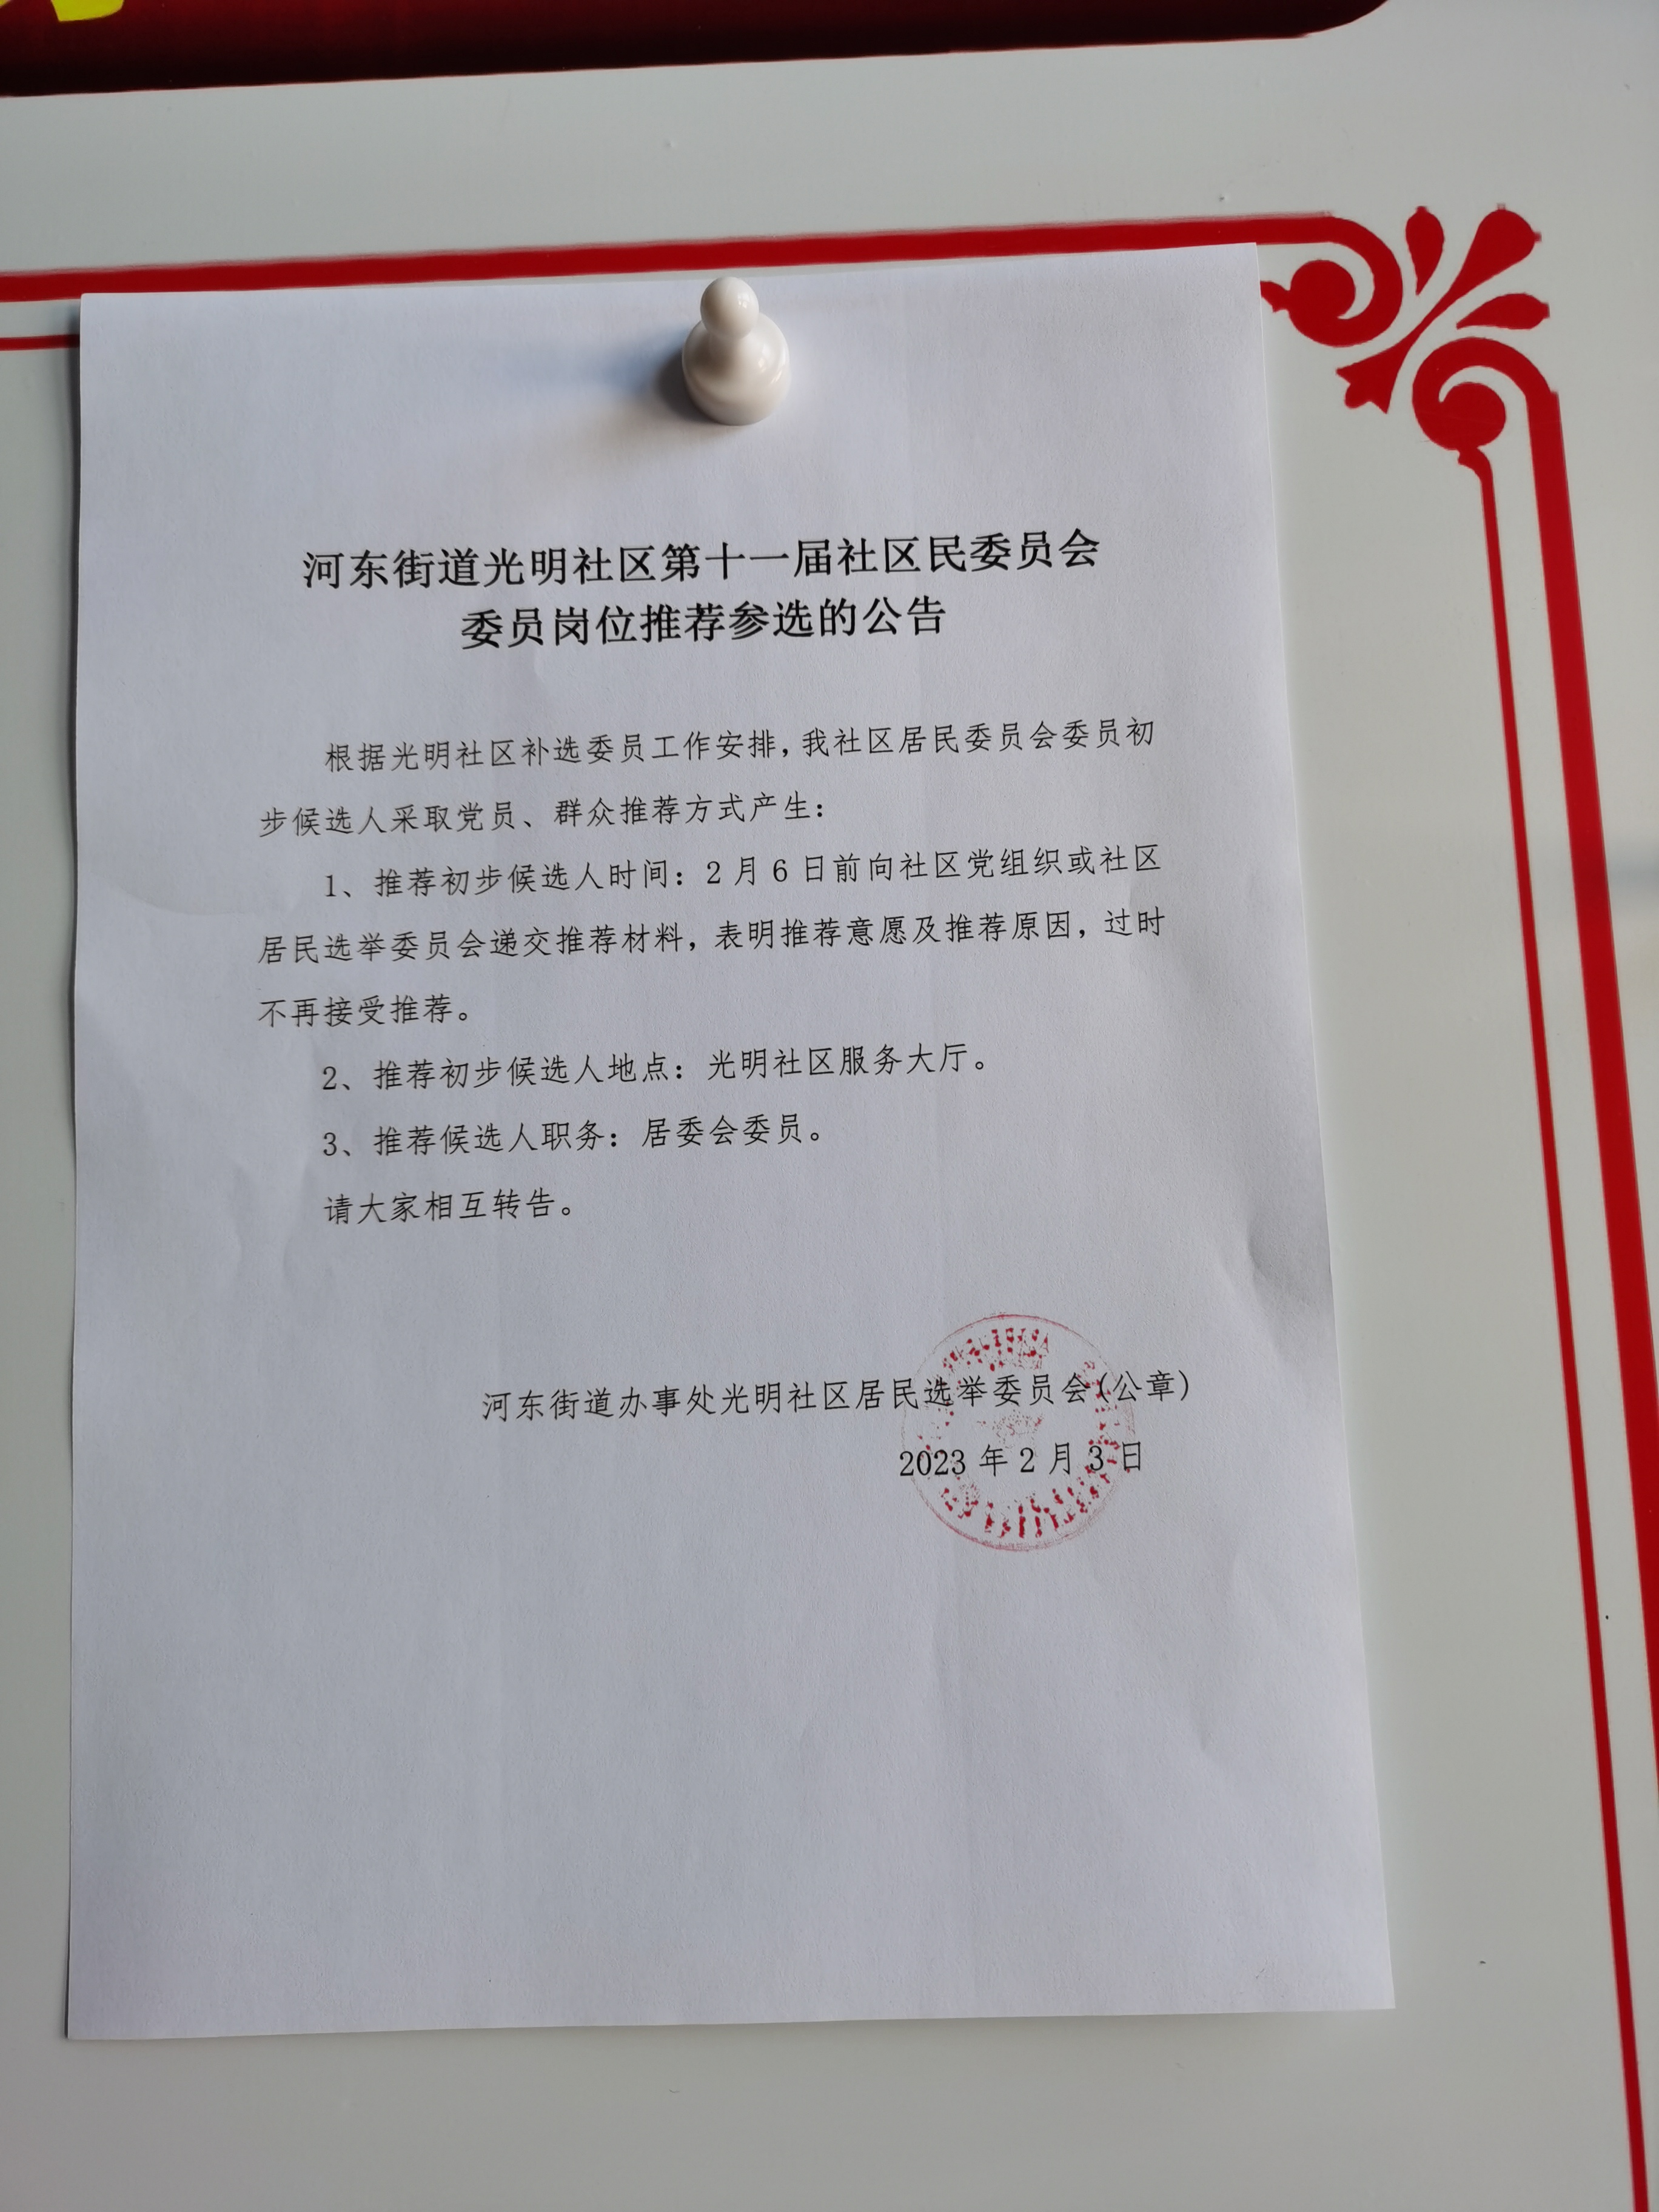 河东街道光明社区第十一届社区民委员会
委员岗位推荐参选的公告
根据光明社区补选委员工作安排,我社区居民委员会委员初
步候选人采取党员、群众推荐方式产生:
1、推荐初步候选人时间:2月6日前向社区党组织或社区
居民选举委员会递交推荐材料,表明推荐意愿及推荐原因,过时
不再接受推荐。
2、推荐初步候选人地点:光明社区服务大厅。
3、推荐候选人职务:居委会委员。
请大家相互转告。
河东街道办事处光明社区居民选举委员会(公章)
2023年2月3日